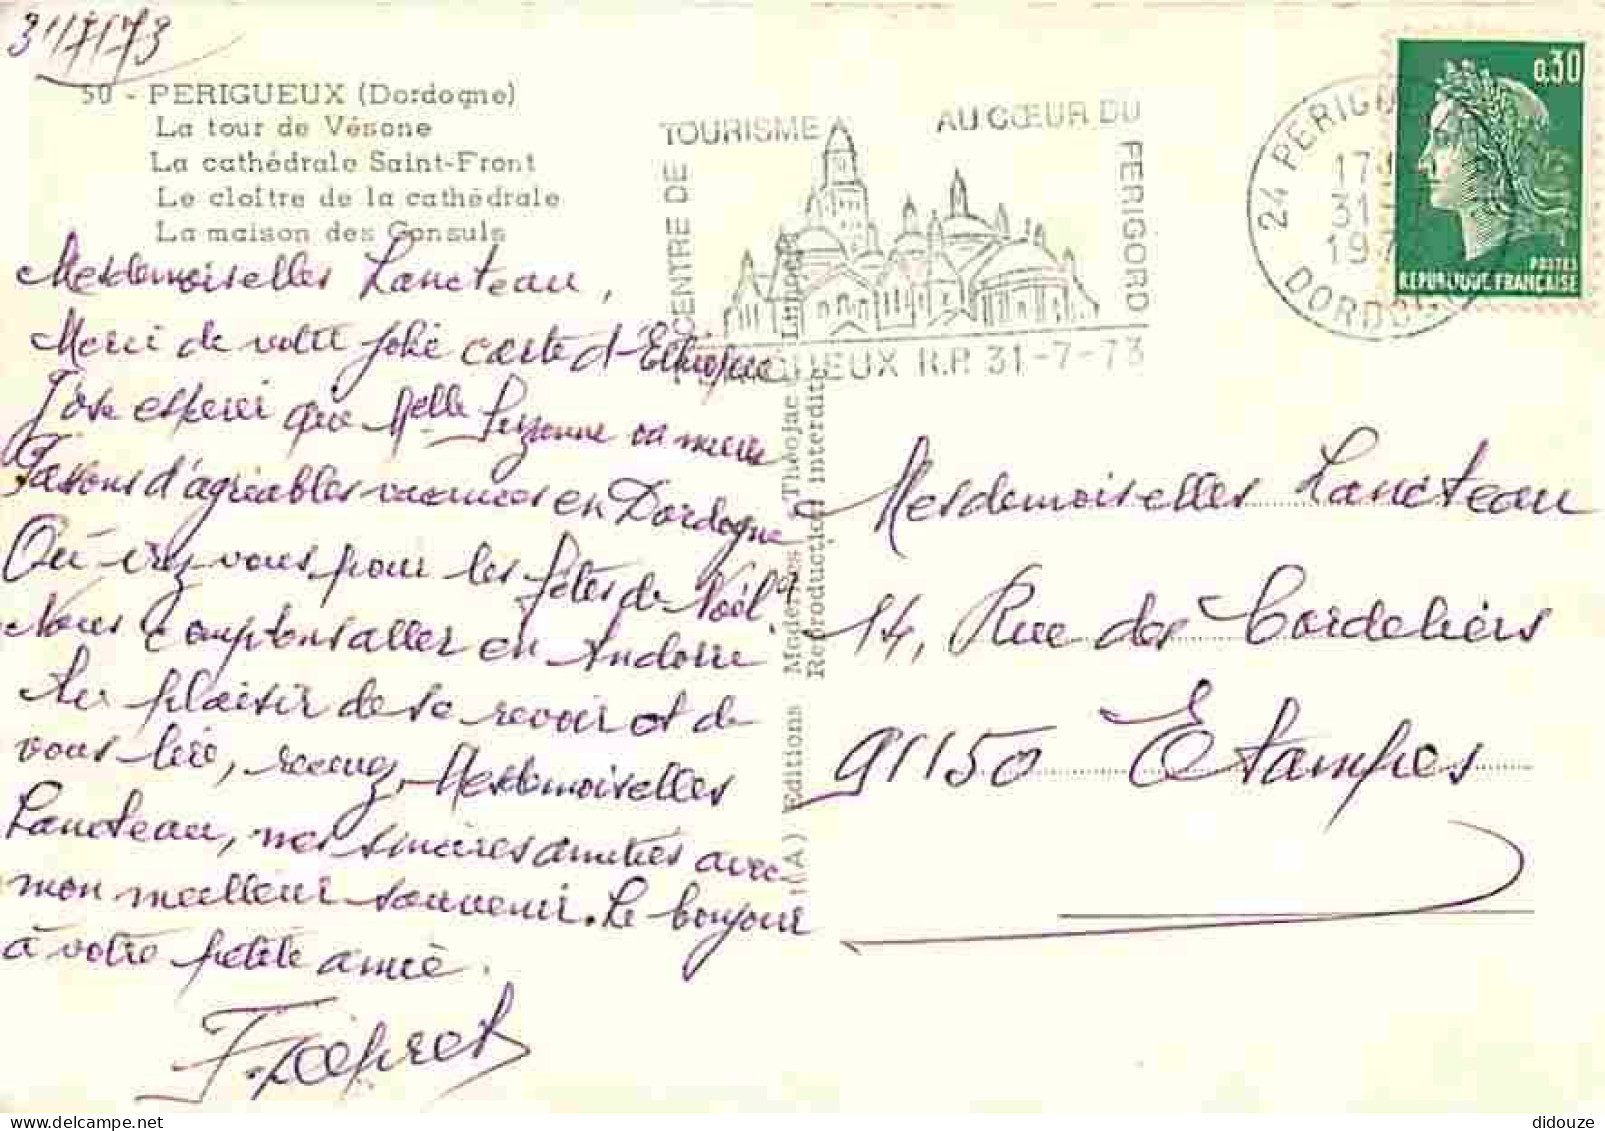 31/7/73
50 - PERIGUEUX (Dordogne)
La tour de Vésone
La cathédrale Saint-Front
Le cloître de la cathédrale
La maison des Consuls
CENTRE DE
TOURISME
AU CŒUR DU
PERIGORD
GUEUX R.P. 31-7-73
24 PERIGUEUX
17
31
197
DORDOGNE
0,30
POSTES
REPUBLIQUE FRANÇAISE
Mesdemoiselles Lancteau,
Merci de votre jolie carte d'Ethiopie
J'ose espérer que Melle Suzanne va mieux
Passons d'agréables vacances en Dordogne
Où irez-vous pour les fêtes de Noël ?
Nous comptons aller en Andorre
Au plaisir de se revoir et de
vous lire, recevez, Mesdemoiselles
Lancteau, nos sincères amitiés avec
mon meilleur souvenir. Le bonjour
à votre petite amie.
(A) Editions Modernes Théojac Limoges
Reproduction interdite
Mesdemoiselles Lancteau
14, Rue des Cordeliers
91150 Etampes
didouze